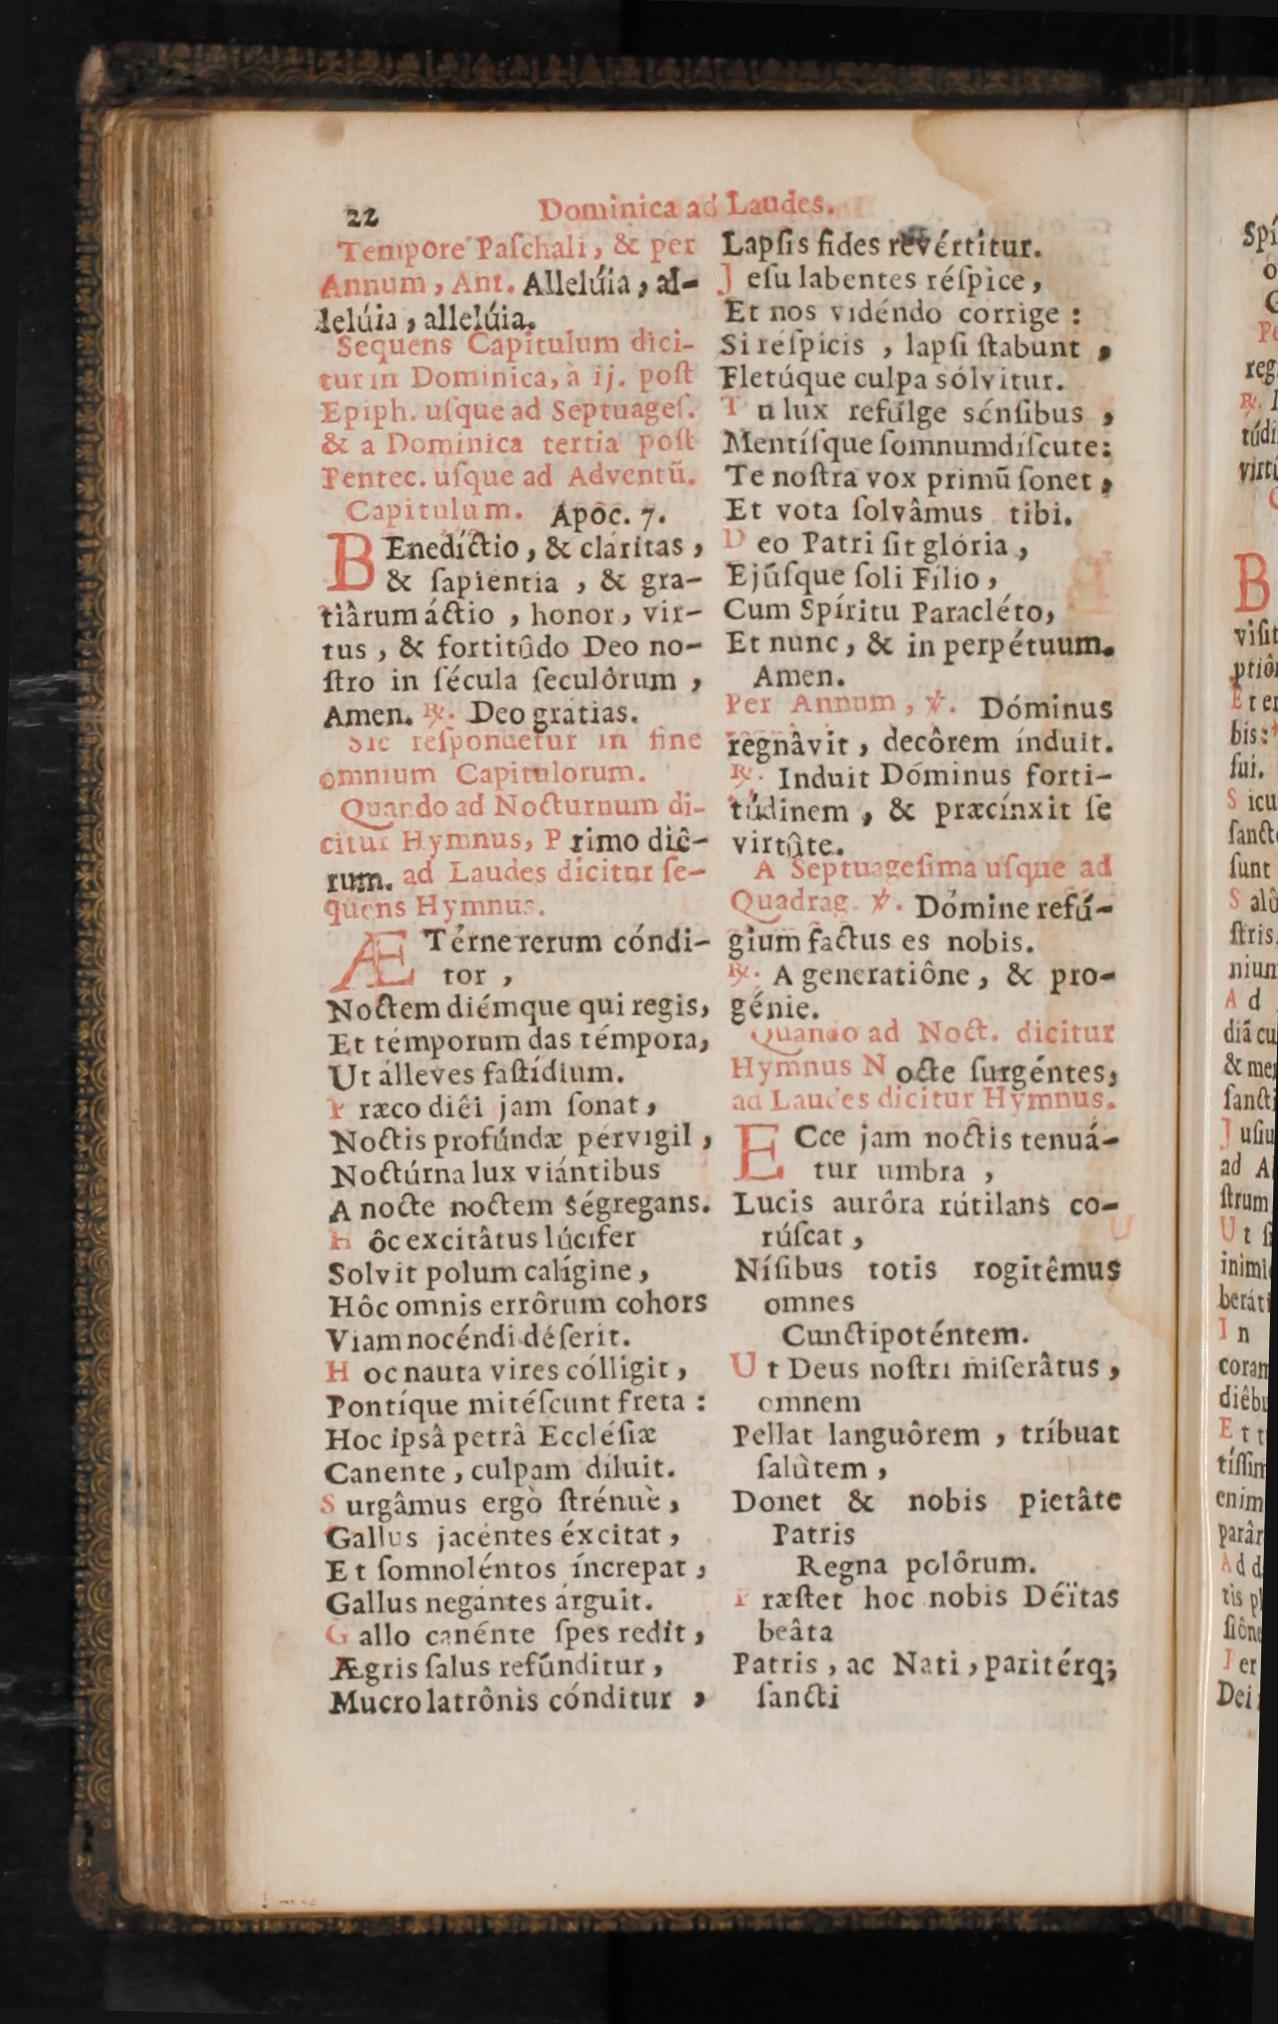 22 Dominica ad Laudes.
Tempore Paſchali, & per
Annum, Ant. Allelúia, al-
lelúia, allelúia.
Sequens Capitulum dici-
tur in Dominica, à ij. poſt
Epiph. uſque ad Septuageſ.
& a Dominica tertia poſt
Pentec. uſque ad Adventū.
Capitulum. Apôc. 7.
BEnedíctio, & cláritas,
& ſapiéntia, & gra-
tiârum áctio, honor, vir-
tus, & fortitûdo Deo no-
ſtro in ſécula ſeculôrum,
Amen. ℟. Deo grátias.
Sic reſpondetur in fine
omnium Capitulorum.
Quando ad Nocturnum di-
citur Hymnus, Primo diê-
rum. ad Laudes dicitur ſe-
quens Hymnus.
ÆTérne rerum cóndi-
tor,
Noctem diémque qui regis,
Et témporum das témpora,
Ut álleves faſtídium.
Præco diêi jam ſonat,
Noctis profúndæ pérvigil,
Noctúrna lux viántibus
A nocte noctem ségregans.
Hôc excitâtus lúcifer
Solvit polum calígine,
Hôc omnis errôrum cohors
Viam nocéndi déſerit.
Hoc nauta vires cólligit,
Pontíque mitéſcunt freta:
Hoc ipsâ petrâ Eccléſiæ
Canente, culpam díluit.
Surgâmus ergò ſtrénuè,
Gallus jacéntes éxcitat,
Et ſomnoléntos íncrepat,
Gallus negántes árguit.
Gallo canénte ſpes redit,
Ægris ſalus refúnditur,
Mucro latrônis cónditur,
Lapſis fides revértitur.
Jeſu labentes réſpice,
Et nos vidéndo corrige:
Si réſpicis, lapſi ſtabunt,
Fletúque culpa sólvitur.
Tu lux refúlge sénſibus,
Mentíſque ſomnum diſcute:
Te noſtra vox primū ſonet,
Et vota ſolvâmus tibi.
Deo Patri ſit glória,
Ejúſque ſoli Fílio,
Cum Spíritu Paracléto,
Et nunc, & in perpétuum.
Amen.
Per Annum, ℣. Dóminus
regnâvit, decôrem índuit.
℟. Induit Dóminus forti-
túdinem, & præcínxit ſe
virtûte.
A Septuageſima uſque ad
Quadrag. ℣. Dómine refú-
gium factus es nobis.
℟. A generatiône, & pro-
génie.
Quando ad Noct. dicitur
Hymnus Nocte ſurgéntes,
ad Laudes dicitur Hymnus.
ECce jam noctis tenuá-
tur umbra,
Lucis aurôra rútilans co-
rúſcat,
Níſibus totis rogitêmus
omnes
Cunctipoténtem.
Ut Deus noſtri miſerâtus,
omnem
Pellat languôrem, tríbuat
ſalùtem,
Donet & nobis pietâte
Patris
Regna polôrum.
Præſtet hoc nobis Déïtas
beâta
Patris, ac Nati, paritérq;
ſancti